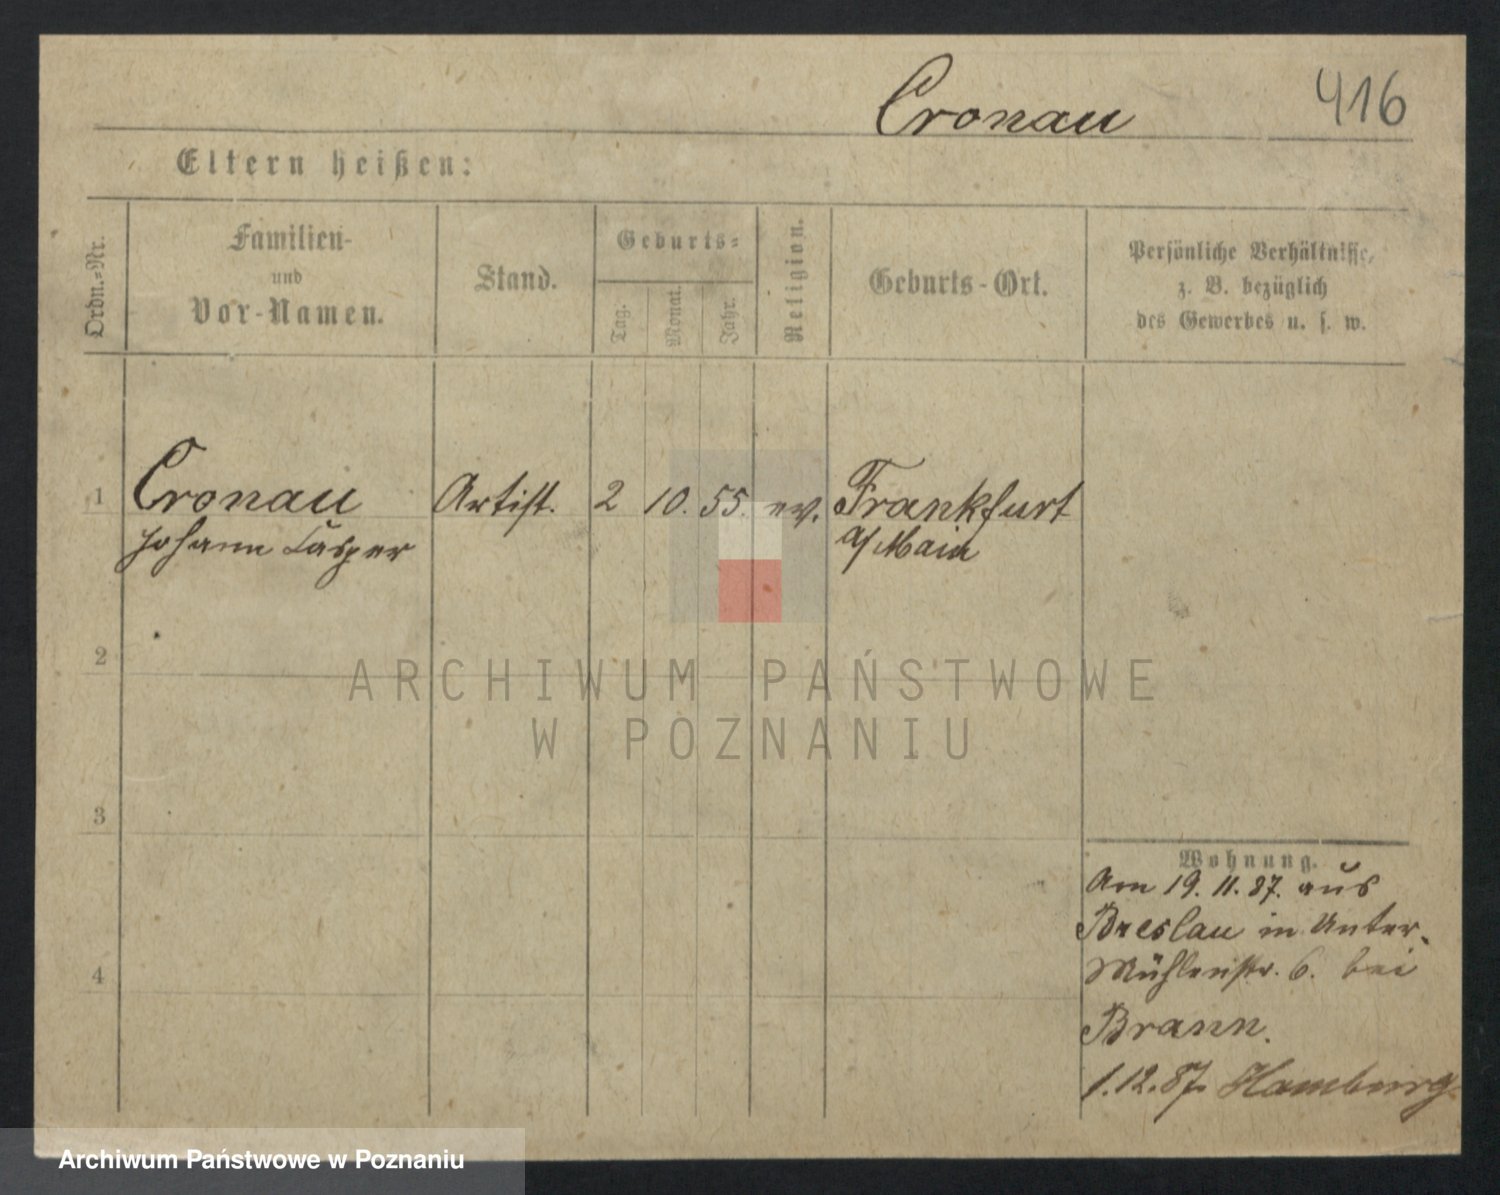 Cronau
416
Eltern heißen:
Ordn.-Nr.
Familien-
und
Vor-Namen.
Stand.
Geburts-
Tag.
Monat.
Jahr.
Religion.
Geburts-Ort.
Persönliche Verhältnisse,
z. B. bezüglich
des Gewerbes u. s. w.
1
Cronau
Johann Casper
Artist.
2
10.
55.
ev.
Frankfurt
a/Main
2
3
4
Wohnung.
Am 19. 11. 87. aus
Breslau in Unter-
Mühlenstr. 6. bei
Brann.
1.12.87. Hamburg
ARCHIWUM PAŃSTWOWE
W POZNANIU
Archiwum Państwowe w Poznaniu